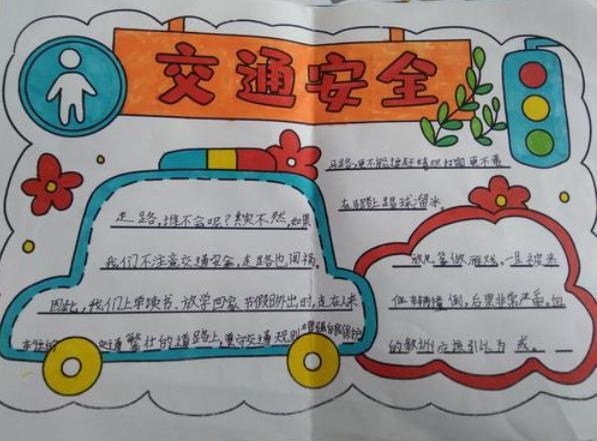 交通安全
走路,谁不会呢?其实不然,如果
我们不注意交通安全,走路也闯祸。
因此,我们上学读书、放学回家、节假日外出时,走在人来
车往的 交通繁壮的道路上,遵守交通规则 增强自我保护
马路,更不能追赶嬉戏打闹更不要
在马路上踢球溜冰。
放风筝做游戏。一旦被来
往车辆撞倒,后果非常严重。血
的教训应该引以为 戒。